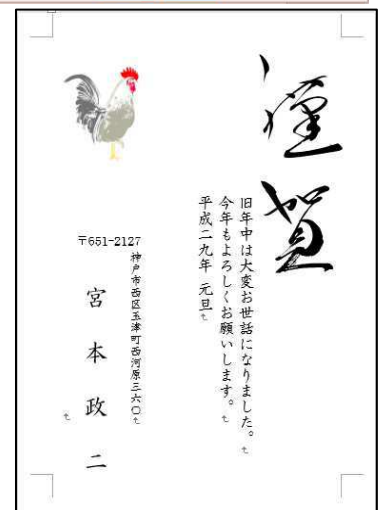 謹賀
旧年中は大変お世話になりました。
今年もよろしくお願いします。
平成二九年 元旦
〒651-2127
神戸市西区玉津町西河原三六〇
宮本政二